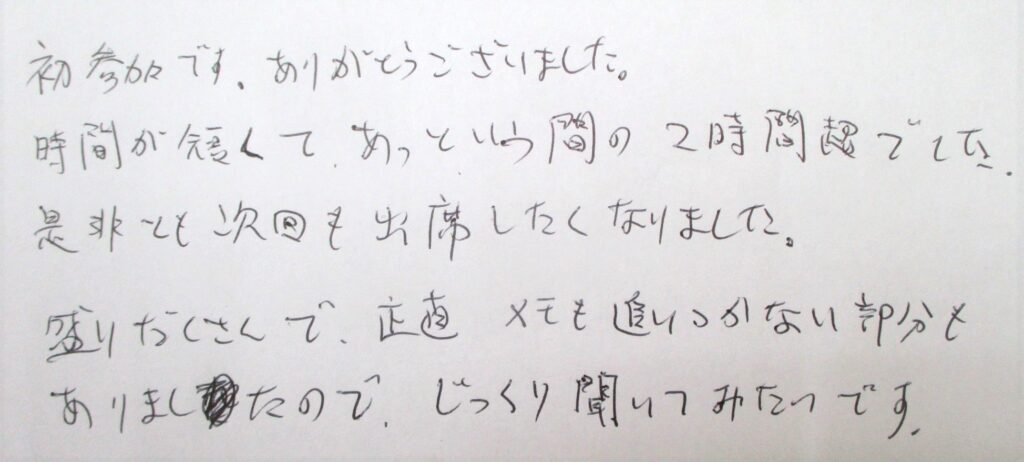 初参加です。ありがとうございました。
時間が短くて、あっという間の2時間超でした。
是非とも次回も出席したくなりました。
盛りだくさんで、正直 メモも追いつかない部分も
ありましたので、じっくり聞いてみたいです。